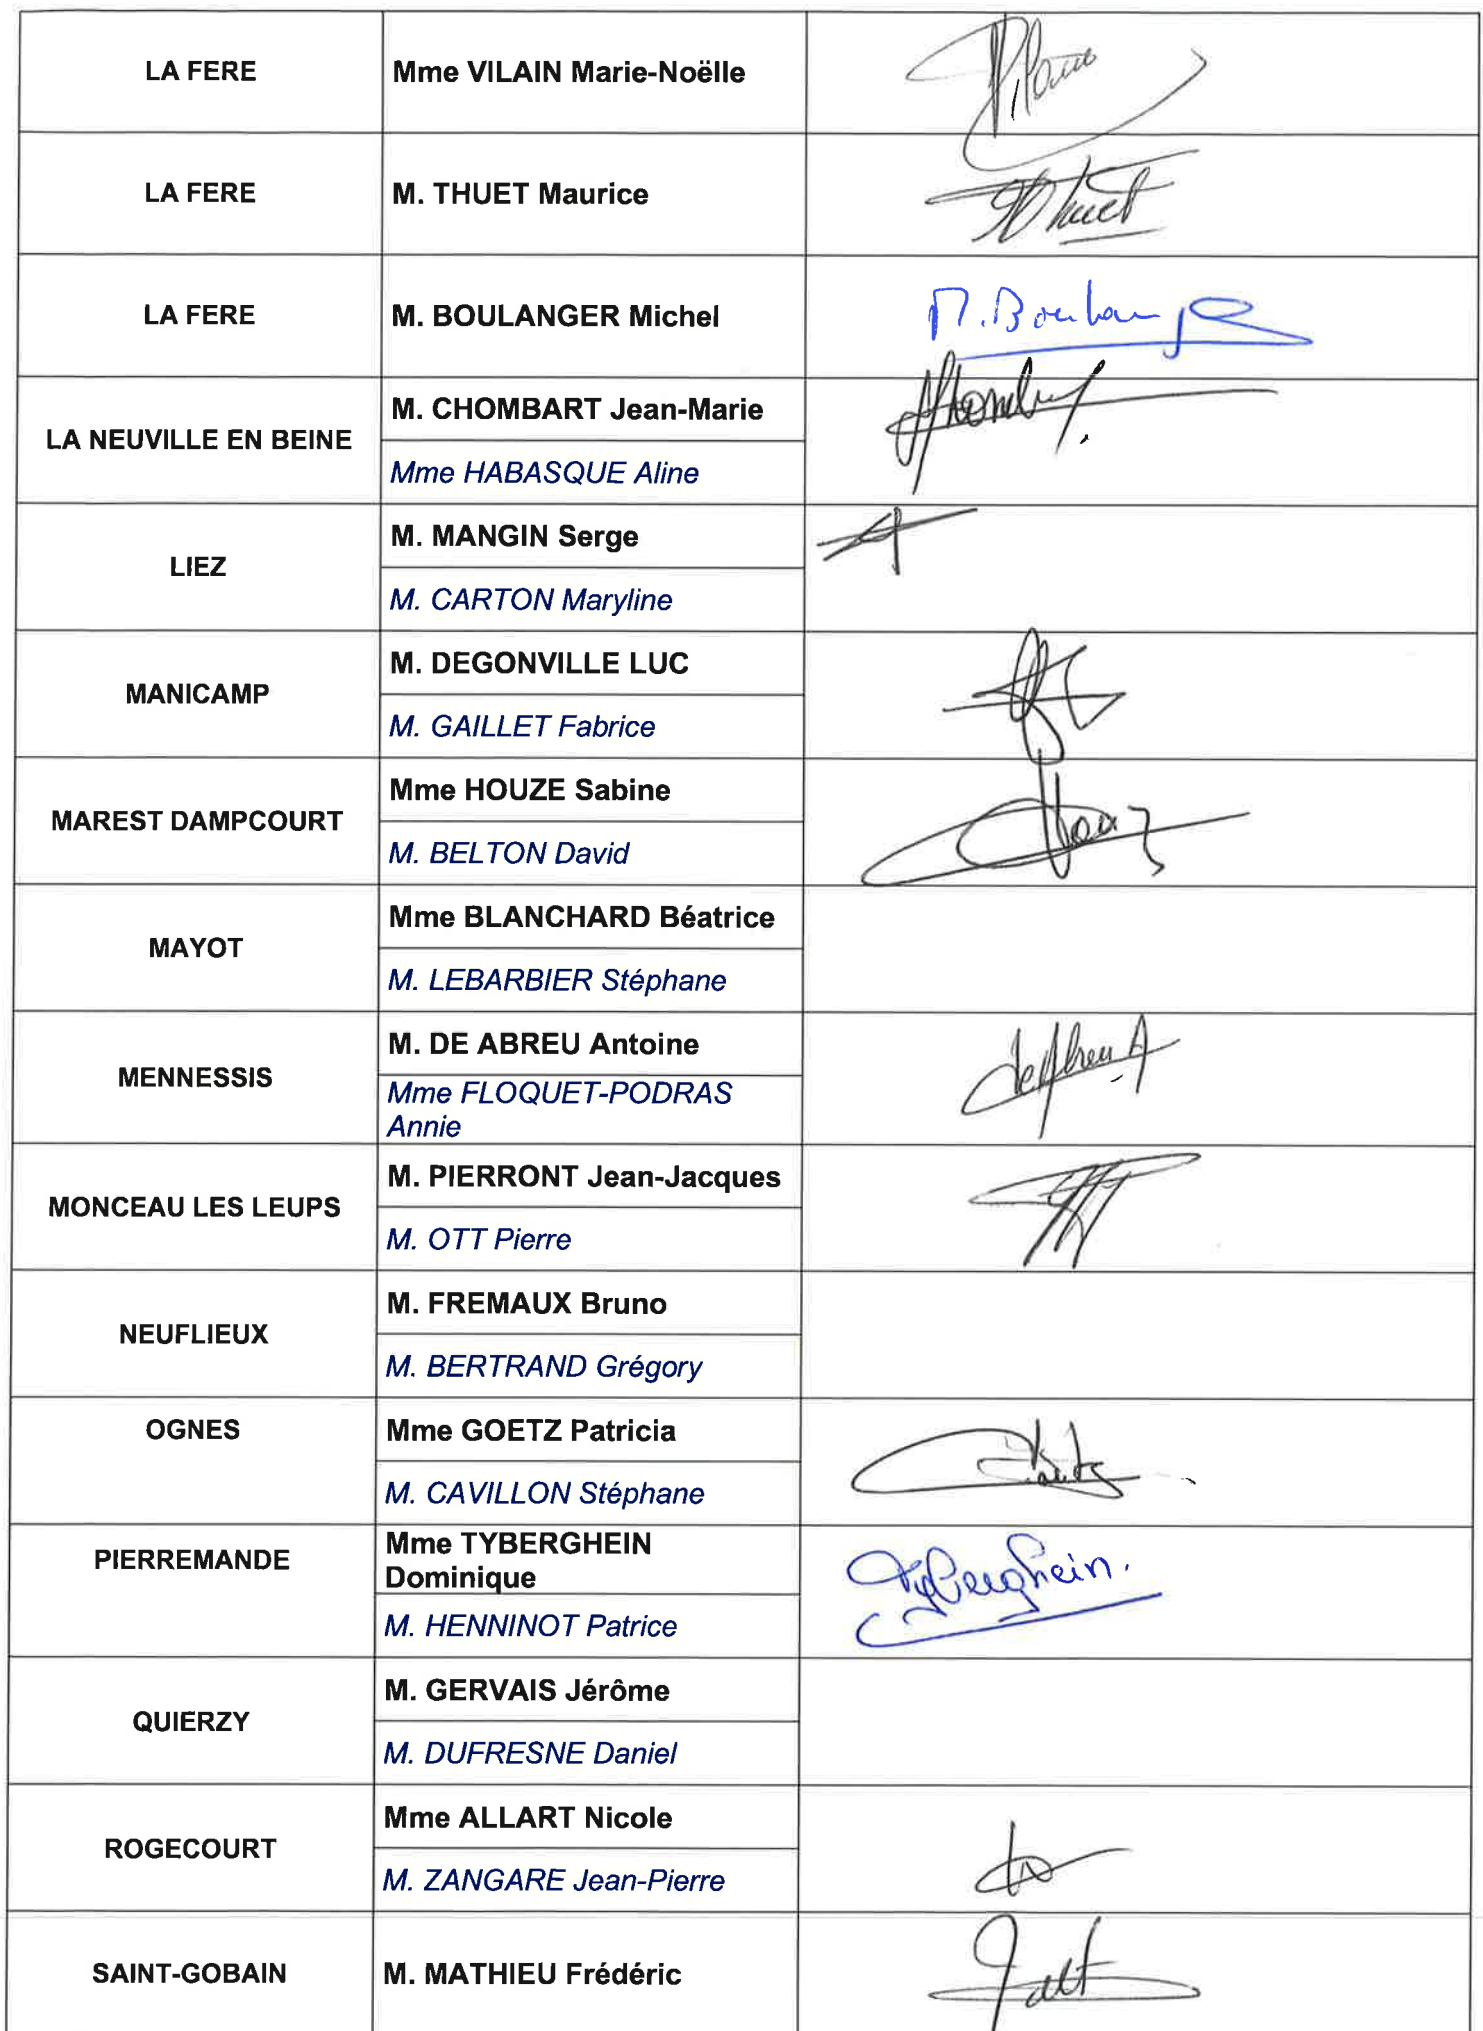 LA FERE
Mme VILAIN Marie-Noëlle
Vilain
LA FERE
M. THUET Maurice
Thuet
LA FERE
M. BOULANGER Michel
M. Boulanger
LA NEUVILLE EN BEINE
M. CHOMBART Jean-Marie
Mme HABASQUE Aline
LIEZ
M. MANGIN Serge
M. CARTON Maryline
MANICAMP
M. DEGONVILLE LUC
M. GAILLET Fabrice
MAREST DAMPCOURT
Mme HOUZE Sabine
M. BELTON David
MAYOT
Mme BLANCHARD Béatrice
M. LEBARBIER Stéphane
MENNESSIS
M. DE ABREU Antoine
Mme FLOQUET-PODRAS
Annie
De Abreu A
MONCEAU LES LEUPS
M. PIERRONT Jean-Jacques
M. OTT Pierre
NEUFLIEUX
M. FREMAUX Bruno
M. BERTRAND Grégory
OGNES
Mme GOETZ Patricia
M. CAVILLON Stéphane
PIERREMANDE
Mme TYBERGHEIN
Dominique
M. HENNINOT Patrice
Tyberghein.
QUIERZY
M. GERVAIS Jérôme
M. DUFRESNE Daniel
ROGECOURT
Mme ALLART Nicole
M. ZANGARE Jean-Pierre
SAINT-GOBAIN
M. MATHIEU Frédéric